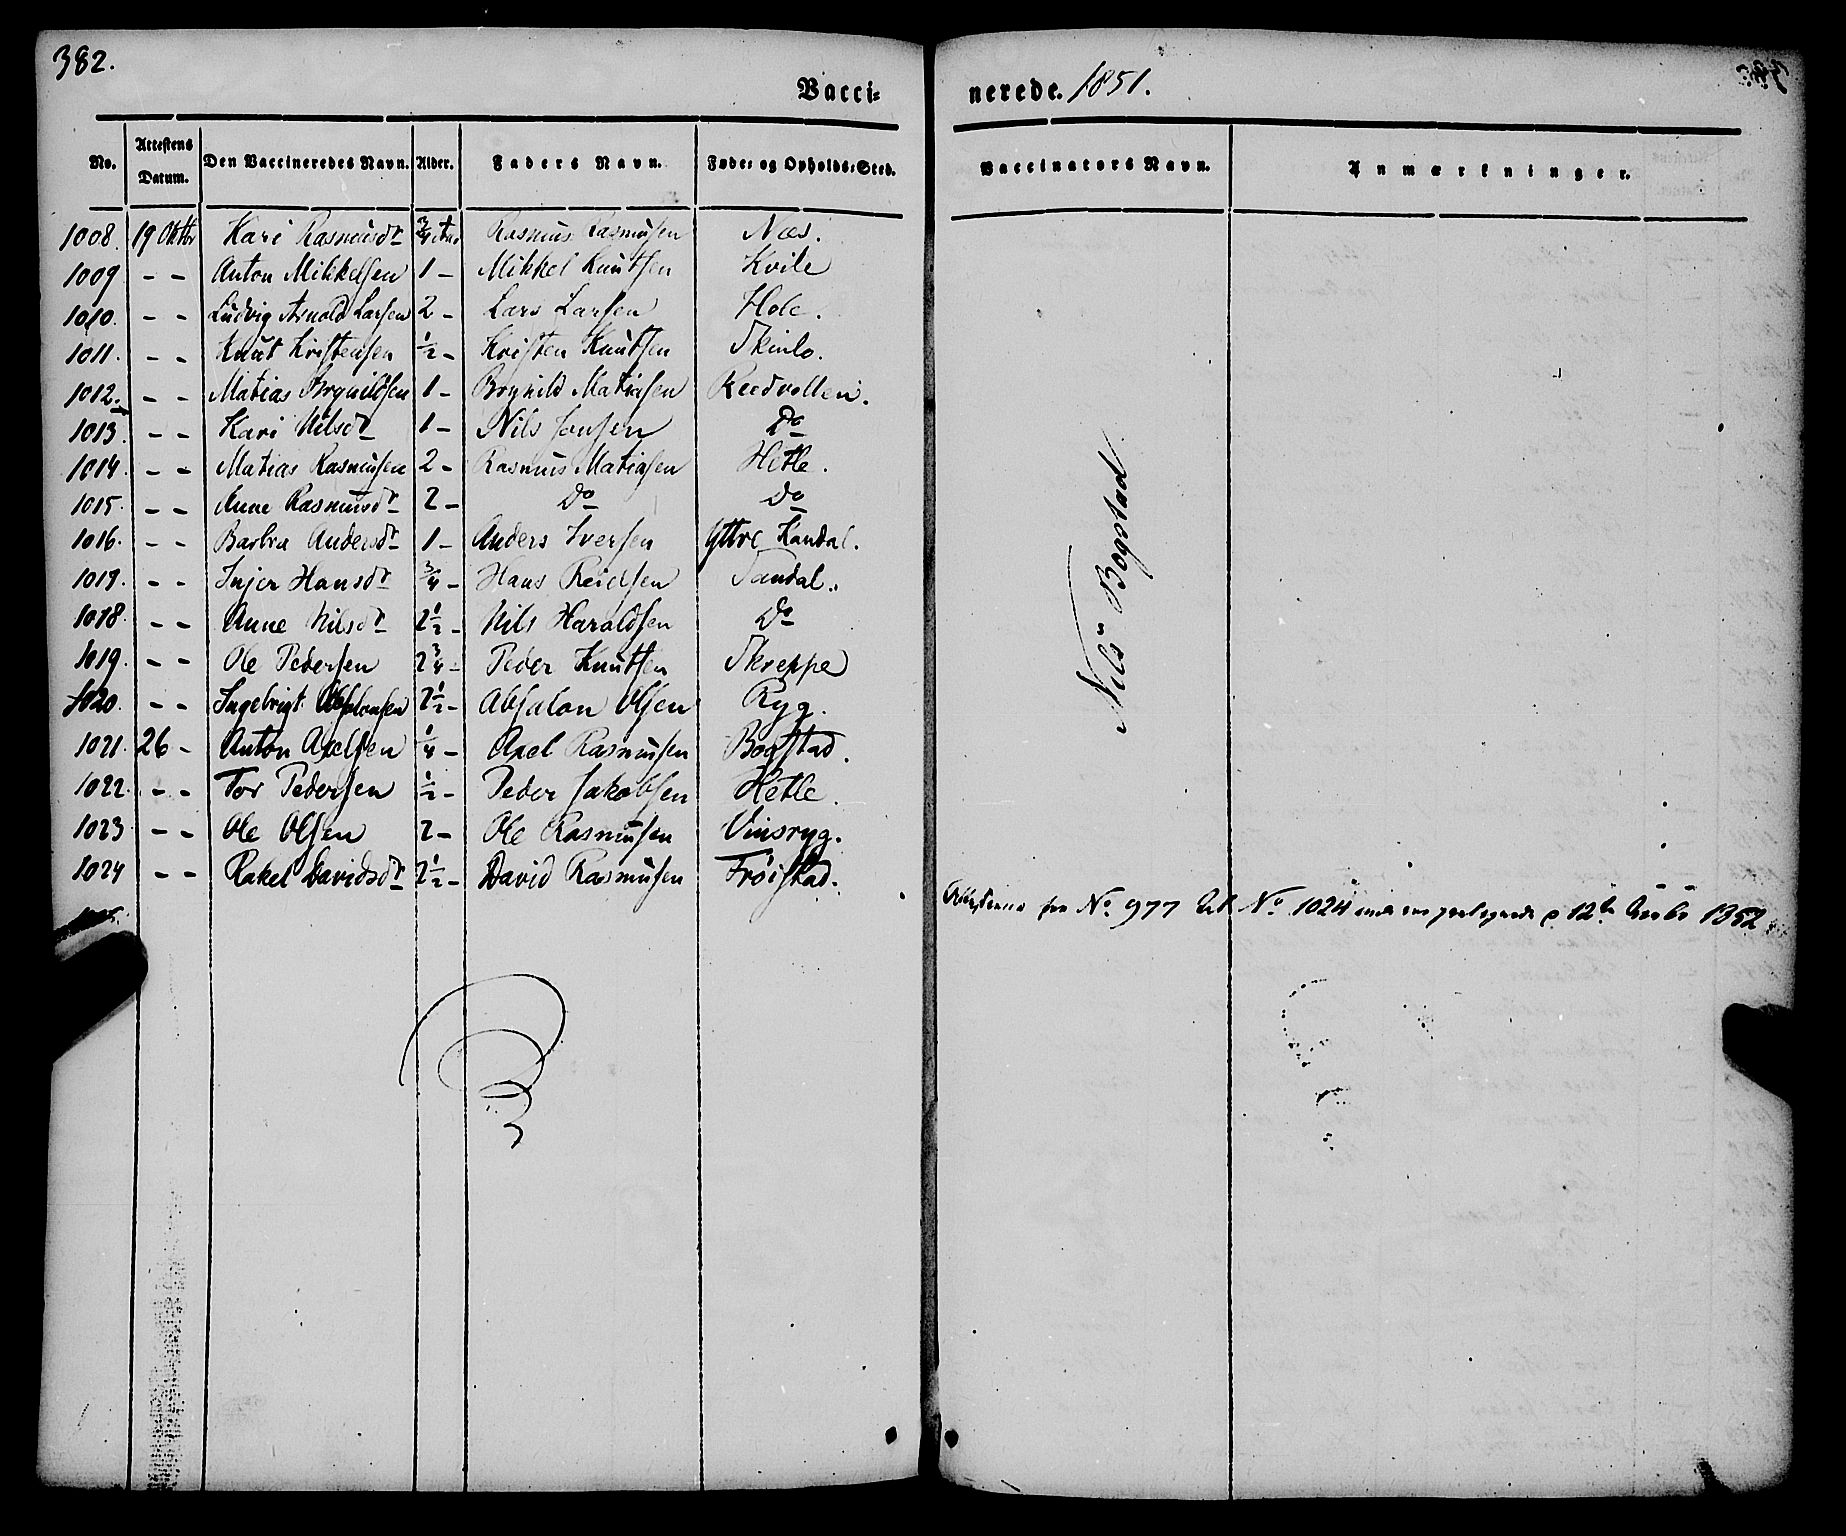 382.
Vacci- nerede. 1851.
No. Attestens Datum. Den Vaccineredes Navn. Alder. Faders Navn. Føde- og Opholds-Sted. Vaccinators Navn. Anmærkninger.
1008. 19 Oktbr Kari Rasmusdr 3/4 Aar Rasmus Rasmussen Næs.
1009 - - Anton Mikkelsen 1 - Mikkel Knutsen Kvile
1010. - - Ludvig Arnold Larsen 2 - Lars Larsen Hole.
1011. - - Knut Kristensen 1/2 - Kristen Knutsen Skinlo.
1012. - - Matias Brynildsen 1 - Brynild Matiasen Reedvollen.
1013. - - Kari Nilsdr 1 - Nils Jonsen Do
1014. - - Matias Rasmussen 2 - Rasmus Matiasen Hetle.
1015. - - Anne Rasmusdr 2 - Do Do
1016. - - Barbra Andersdr 1 - Anders Iversen Yttre Kandal.
1017. - - Injer Hansdr 3/4 - Hans Reiersen Sandal.
1018. - - Anne Nilsdr 2 1/2 - Nils Haraldsen Do
1019. - - Ole Pedersen 2 3/4 - Peder Knutsen Skreppe
1020. - - Ingebrigt Absalonsen 2 1/2 - Absalon Olsen Ryg.
1021. 26 - Anton Axelsen 1/4 - Axel Rasmussen Bogstad.
1022. - - Tor Pedersen 1/2 - Peder Jakobsen Hetle.
1023 - - Ole Olsen 2 - Ole Rasmussen Vinsryg.
1024 - - Rakel Davidsdr 2 1/2 - David Rasmussen Frøistad.
Nils Bogstad
Attesterne fra No. 977 til No. 1024 12te 1852